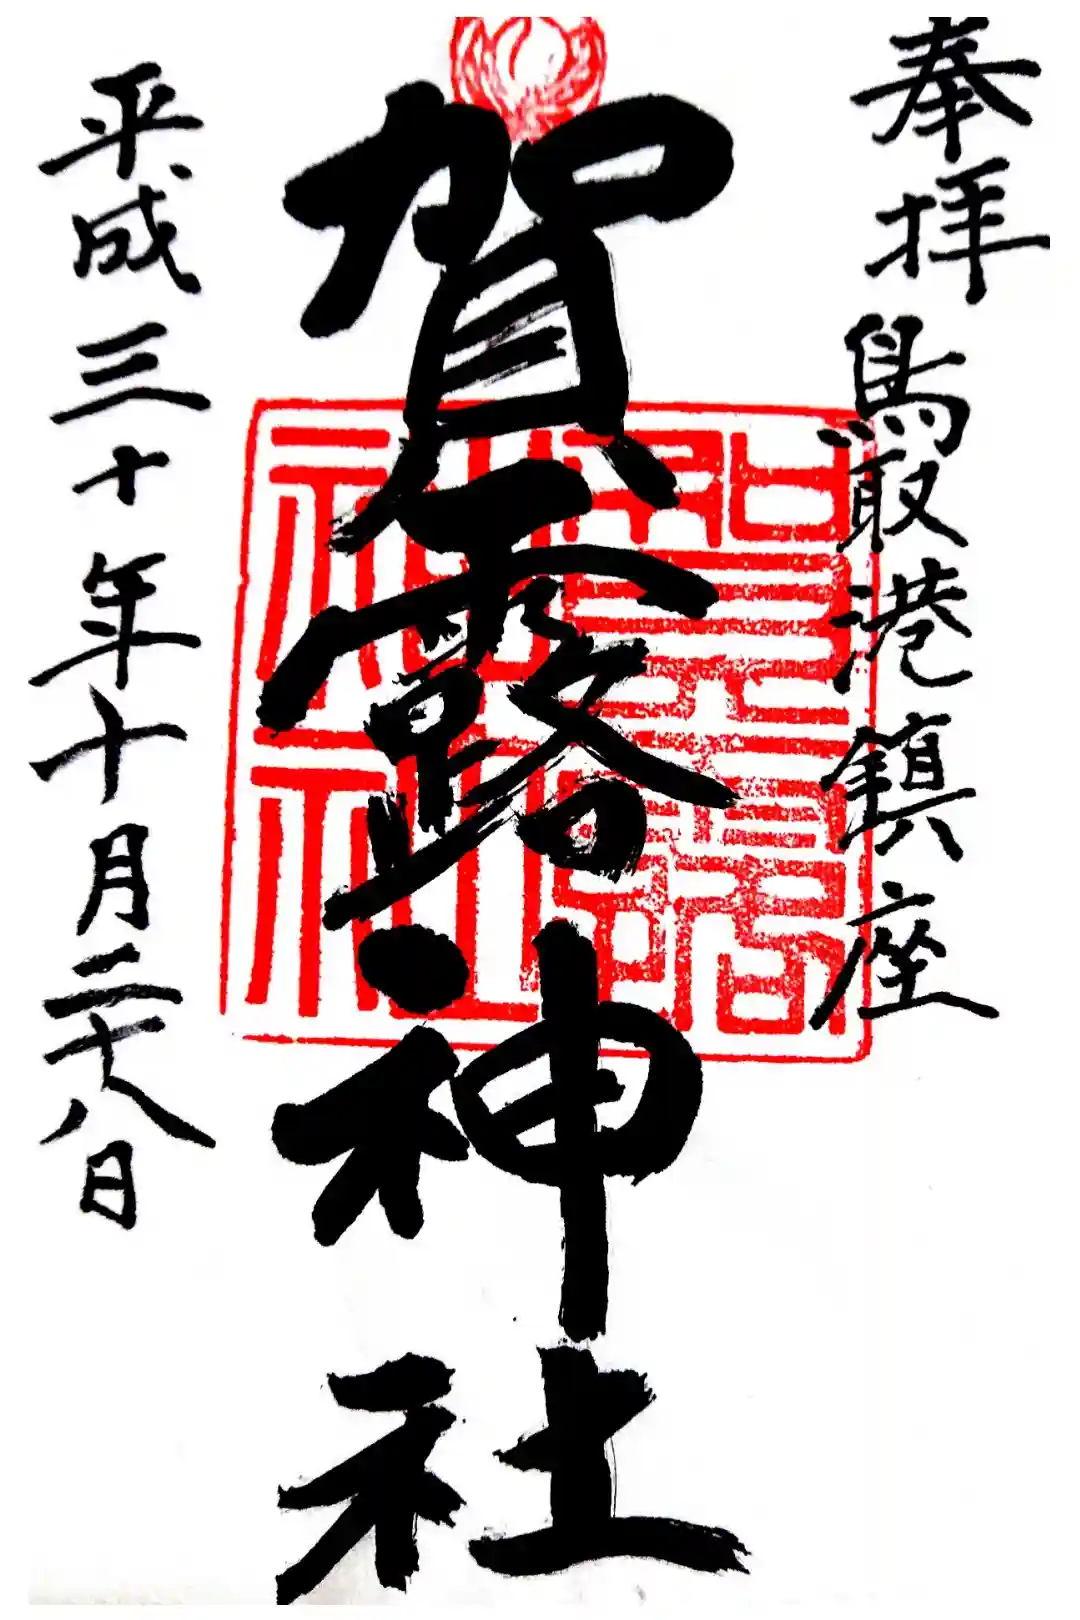 奉拝 鳥取港鎮座
賀露神社
平成三十年十月二十八日